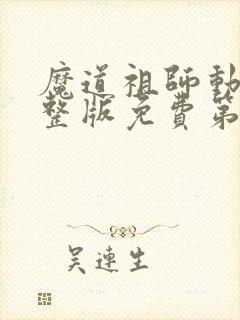 魔道祖師動
整版免費第
吴連生